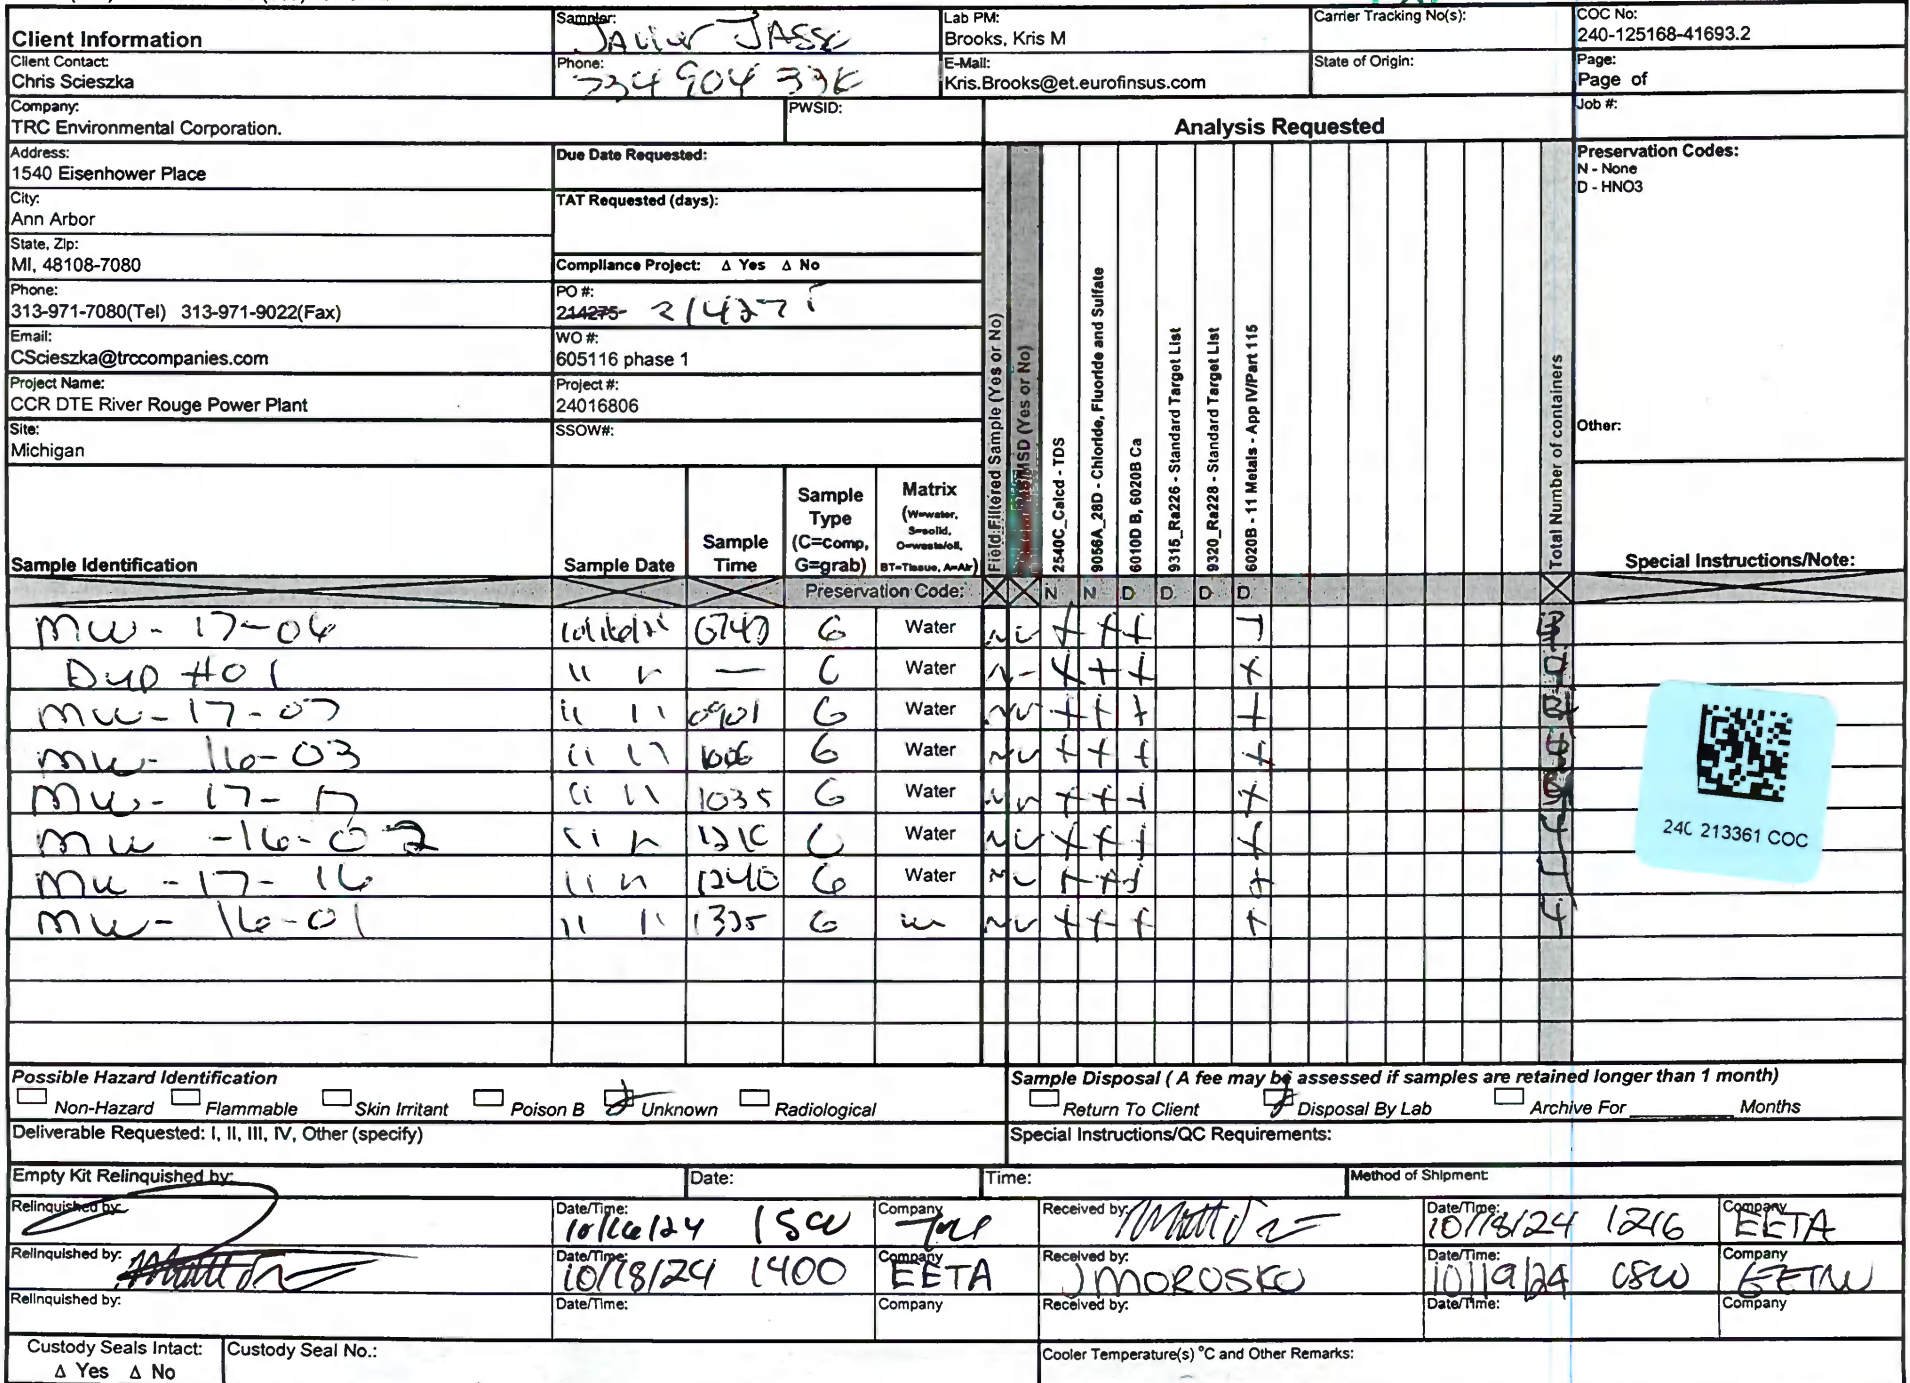 Client Information
Sampler:
Lab PM:
Brooks, Kris M
Carrier Tracking No(s):
COC No:
240-125168-41693.2
Client Contact:
Chris Scieszka
Phone:
734 904 33
E-Mail:
Kris.Brooks@et.eurofinsus.com
State of Origin:
Page:
Page of
Company:
TRC Environmental Corporation.
PWSID:
Analysis Requested
Job #:
Address:
1540 Eisenhower Place
Due Date Requested:
Preservation Codes:
N - None
D - HNO3
City:
Ann Arbor
TAT Requested (days):
State, Zip:
MI, 48108-7080
Compliance Project: Δ Yes Δ No
Phone:
313-971-7080(Tel) 313-971-9022(Fax)
PO #:
214275-
Email:
CScieszka@trccompanies.com
WO #:
605116 phase 1
Project Name:
CCR DTE River Rouge Power Plant
Project #:
24016806
Site:
Michigan
SSOW#:
Other:
Field Filtered Sample (Yes or No)
MS/MSD (Yes or No)
2540C_Calcd - TDS
9056A_28D - Chloride, Fluoride and Sulfate
6010D B, 6020B Ca
9315_Ra226 - Standard Target List
9320_Ra228 - Standard Target List
6020B - 11 Metals - App IV/Part 115
Total Number of containers
Sample Identification
Sample Date
Sample Time
Sample Type (C=comp, G=grab)
Matrix (W=water, S=solid, O=waste/oil, BT=Tissue, A=Air)
Special Instructions/Note:
Preservation Code: X X N N D D D D X
MW-17-06 G Water N N + + +
Dup #01 " " — G Water N - + + + +
MW-17-07 " " 0901 G Water N N + + + +
MW-16-03 " " G Water N N + + + +
MW-17-17 " " 1035 G Water N N + + + +
MW-16-02 " " 1210 G Water N N + + + + 4
MW-17-16 " " 1240 G Water N N + + + +
MW-16-01 " " 1335 G W N N + + + + 4
240 213361 COC
Possible Hazard Identification
Non-Hazard Flammable Skin Irritant Poison B Unknown Radiological
Sample Disposal ( A fee may be assessed if samples are retained longer than 1 month)
Return To Client Disposal By Lab Archive For ________ Months
Deliverable Requested: I, II, III, IV, Other (specify)
Special Instructions/QC Requirements:
Empty Kit Relinquished by:
Date:
Time:
Method of Shipment:
Relinquished by:
Date/Time:
10/16/24 1500
Company
Received by:
Date/Time:
10/18/24 1216
Company
EETA
Relinquished by:
Date/Time:
10/18/24 1400
Company
EETA
Received by:
J MOROSKO
Date/Time:
10/19/24 0800
Company
Relinquished by:
Date/Time:
Company
Received by:
Date/Time:
Company
Custody Seals Intact:
Δ Yes Δ No
Custody Seal No.:
Cooler Temperature(s) °C and Other Remarks: